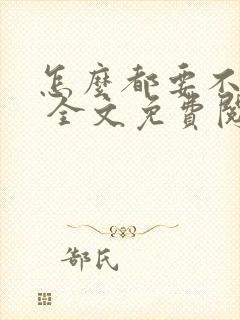 怎麼都要不
全文免費閱
郜氏